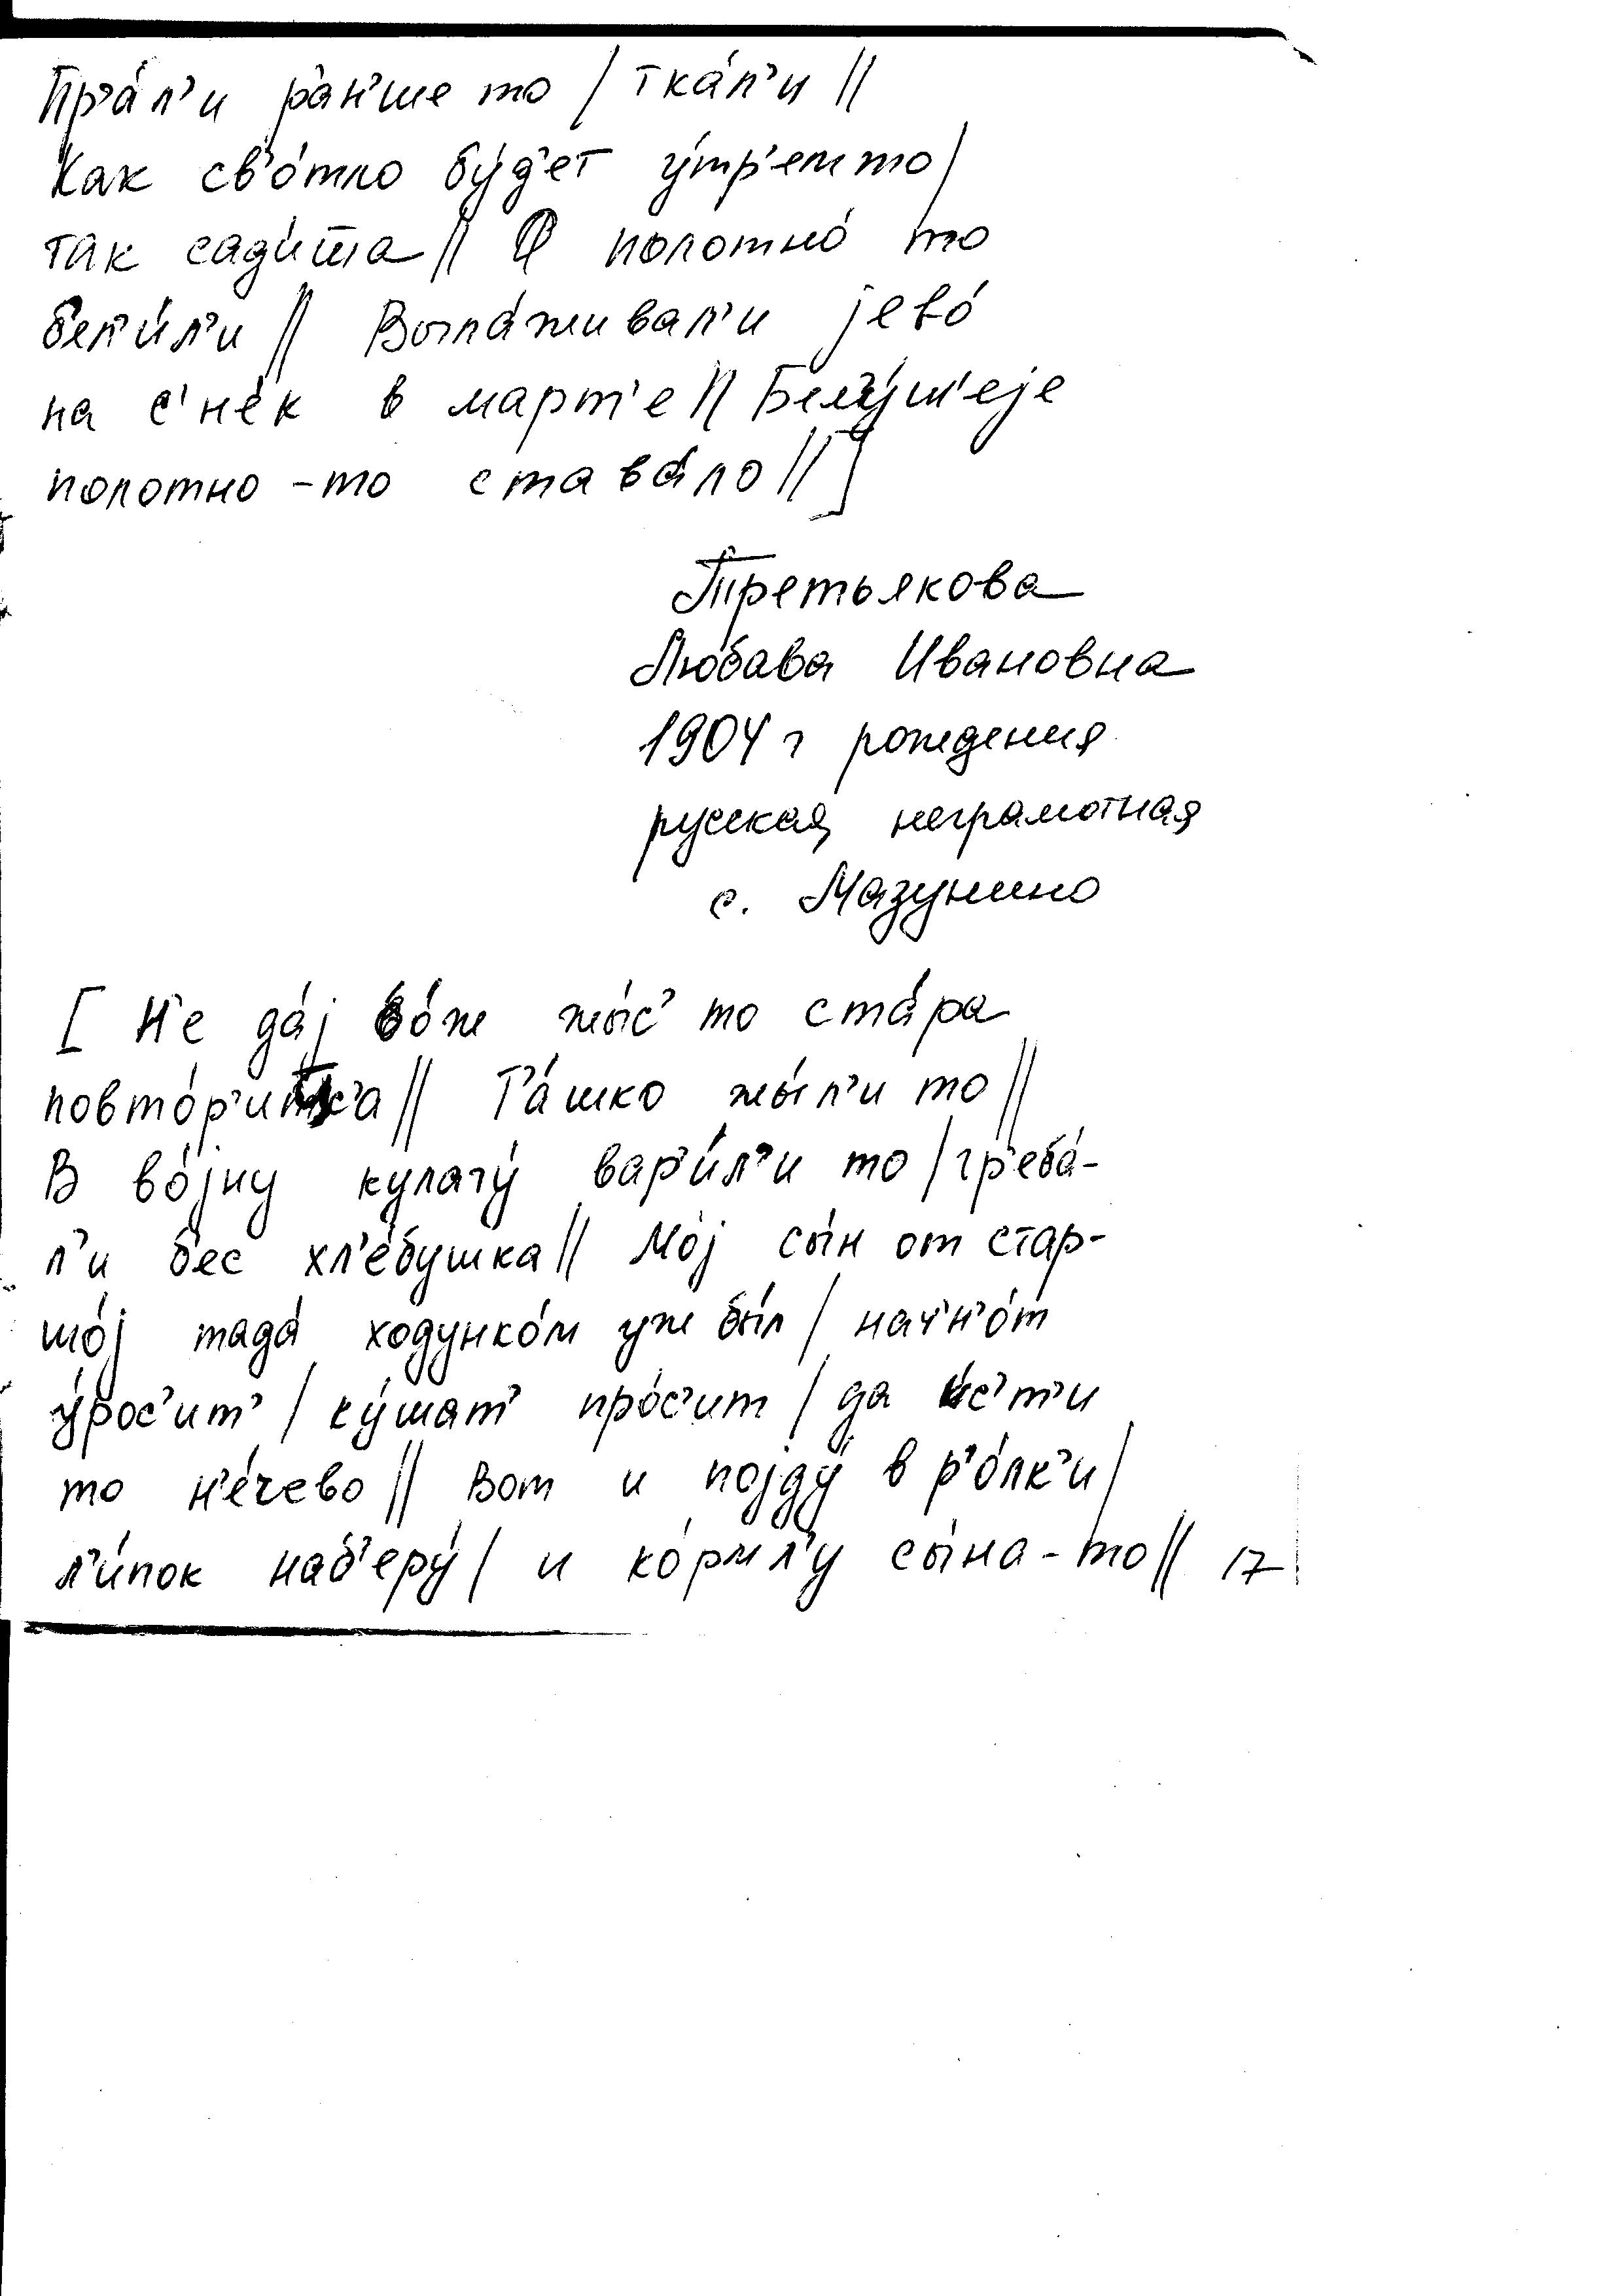 Пр'а́л'и ра́н'ше то / тка́л'и //
Как св'о́тло бу́д'ет у́тр'ем то /
так сад'и́т̄а // А полотно́ то
б'ел'и́л'и // Выла́живал'и jево́
на с'не́к в март'е // Бел'у́ш'еjе
полотно-то става́ло // ]
Третьякова
Любава Ивановна
1904 г рождения
русская, неграмотная
с. Мазунино
[ Н'е да́j бо́ж жы́с' то ста́ра
повто́р'и а // Т'а́шко жы́л'и то //
В во́jну кулагу́ вар'и́л'и то / гр'еба́-
л'и б'ес хл'е́бушка // Мо́j сы́н от стар-
шо́j тада́ ходунко́м уж бы́л / нач'н'о́т
у́рос'ит' / ку́шат' про́с'ит / да и́с'т'и
то н'е́чево // Вот и поjду́ в р'о́лк'и /
л'и́пок наб'еру́ / и ко́рмл'у сы́на-то // 17